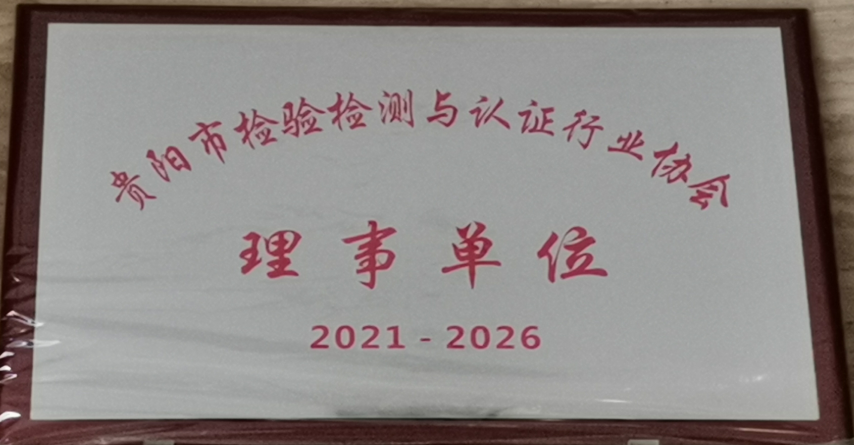 贵阳市检验检测与认证行业协会
理事单位
2021-2026